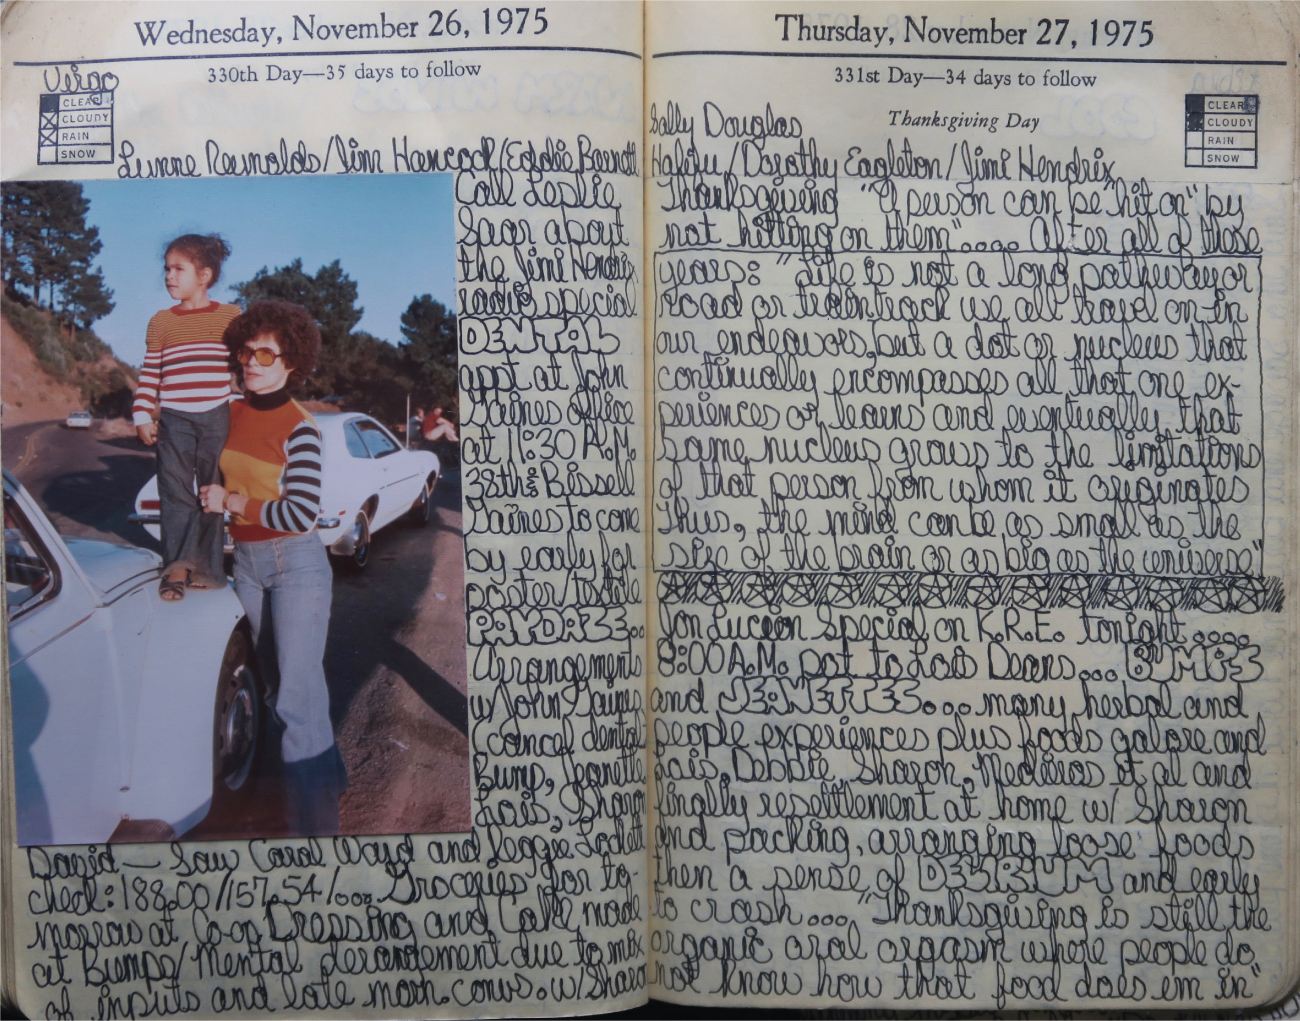 Wednesday, November 26, 1975
330th Day—35 days to follow
Virgo
CLEAR
CLOUDY
RAIN
SNOW
Lynne Reynolds/Jim Hancock/Eddie Barnett
Call Leslie
about
the Jimi Hendrix
radio special
DENTAL
appt at John
Gaines office
at 11:30 A.M.
38th & Bissell
Gaines to come
by early for
poster/
PAYDAZE..
Arrangements
w/John Gaines
(cancel dental
Bump, Jeanette
Lois, Sharon
David — Saw Carol Ward and Reggie
check: 188.00/157.54/... Groceries for to-
morrow at Co-op Dressing and Cake made
at Bumps/Mental derangement due to mix
of inputs and late morn. convs. w/Sharon
Thursday, November 27, 1975
331st Day—34 days to follow
Thanksgiving Day
CLEAR
CLOUDY
RAIN
SNOW
Sally Douglas
Hafiju/Dorothy Eagleton/Jimi Hendrix
Thanksgiving "A person can be "hit on" by
not hitting on them".... After all of these
years: "Life is not a long pathway or
road or traintrack we all travel on in
our endeavors, but a dot or nucleus that
continually encompasses all that one ex-
periences or learns and eventually that
same nucleus grows to the limitations
of that person from whom it originates
Thus, the mind can be as small as the
size of the brain or as big as the universe"
Jon Lucien Special on K.R.E. tonight....
8:00 A.M. pot to Lois Deans... BUMPS
and JEANETTES... many herbal and
people experiences plus foods galore and
Lois, Debbie, Sharon, Medeiros et al and
finally resettlement at home w/ Sharon
and packing, arranging loose foods
then a sense of and early
to crash.... "Thanksgiving is still the
organic oral orgasm where people do
not know how that food does em in"